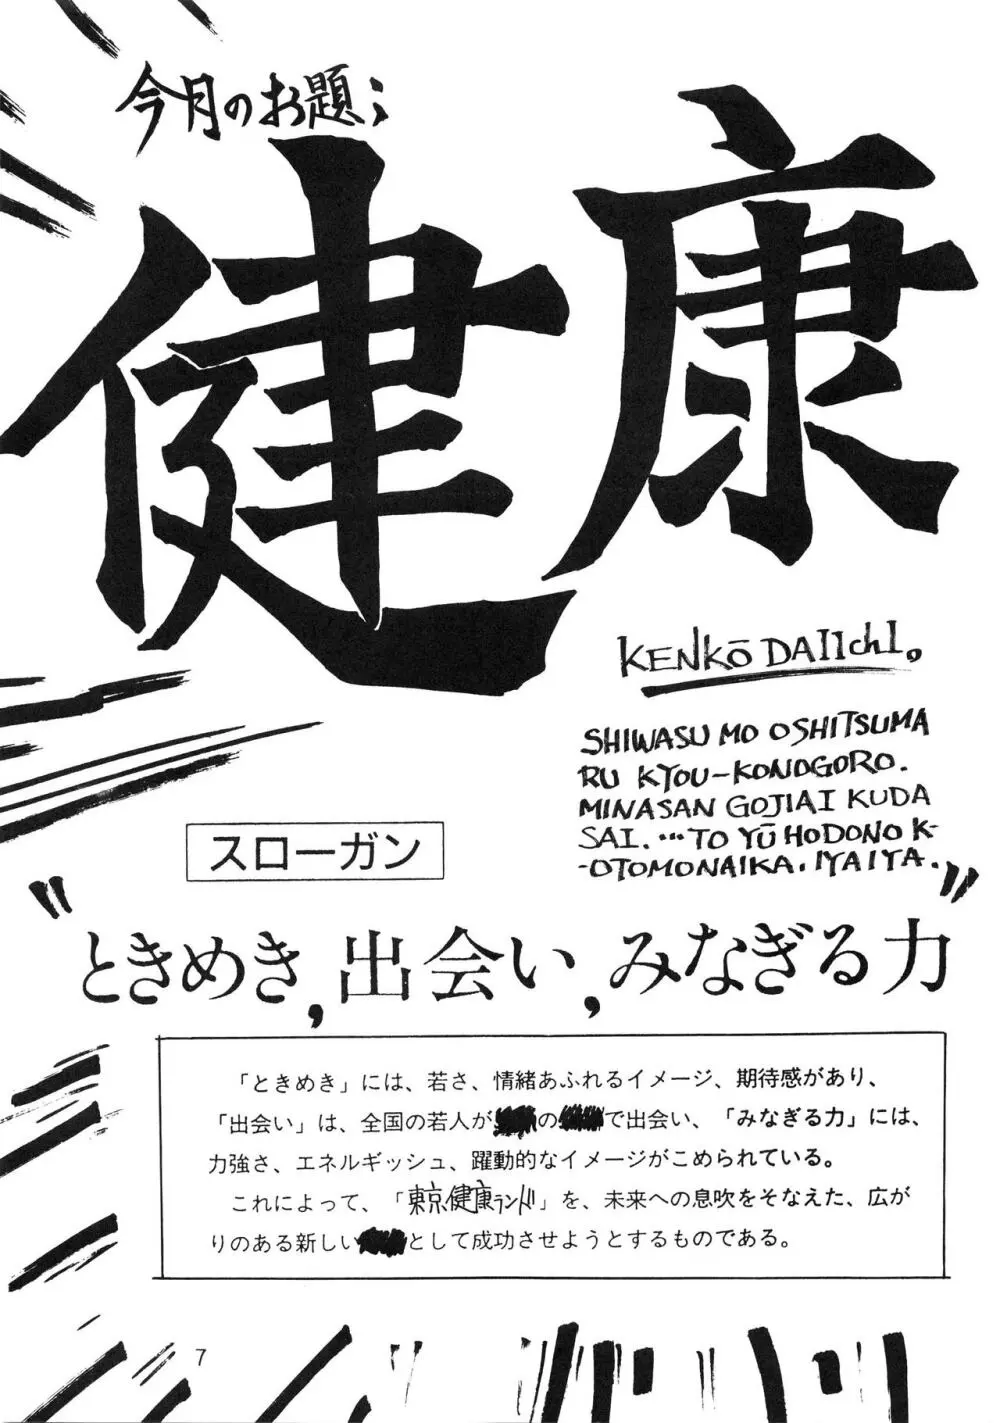 今月のお題;
健康
KENKŌ DAIICHI,
SHIWASU MO OSHITSUMA
RU KYOU-KONOGORO.
MINASAN GOJIAI KUDA
SAI. …TO YŪ HODONO K-
-OTOMONAIKA. IYAIYA.
スローガン
"ときめき,出会い,みなぎる力"
「ときめき」には、若さ、情緒あふれるイメージ、期待感があり、
「出会い」は、全国の若人がの で出会い、「みなぎる力」には、
力強さ、エネルギッシュ、躍動的なイメージがこめられている。
これによって、「東京健康ランド」を、未来への息吹をそなえた、広が
りのある新しい として成功させようとするものである。
7